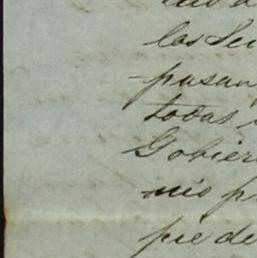 los Se
pasan
todas
Gobier
mis p
pie de